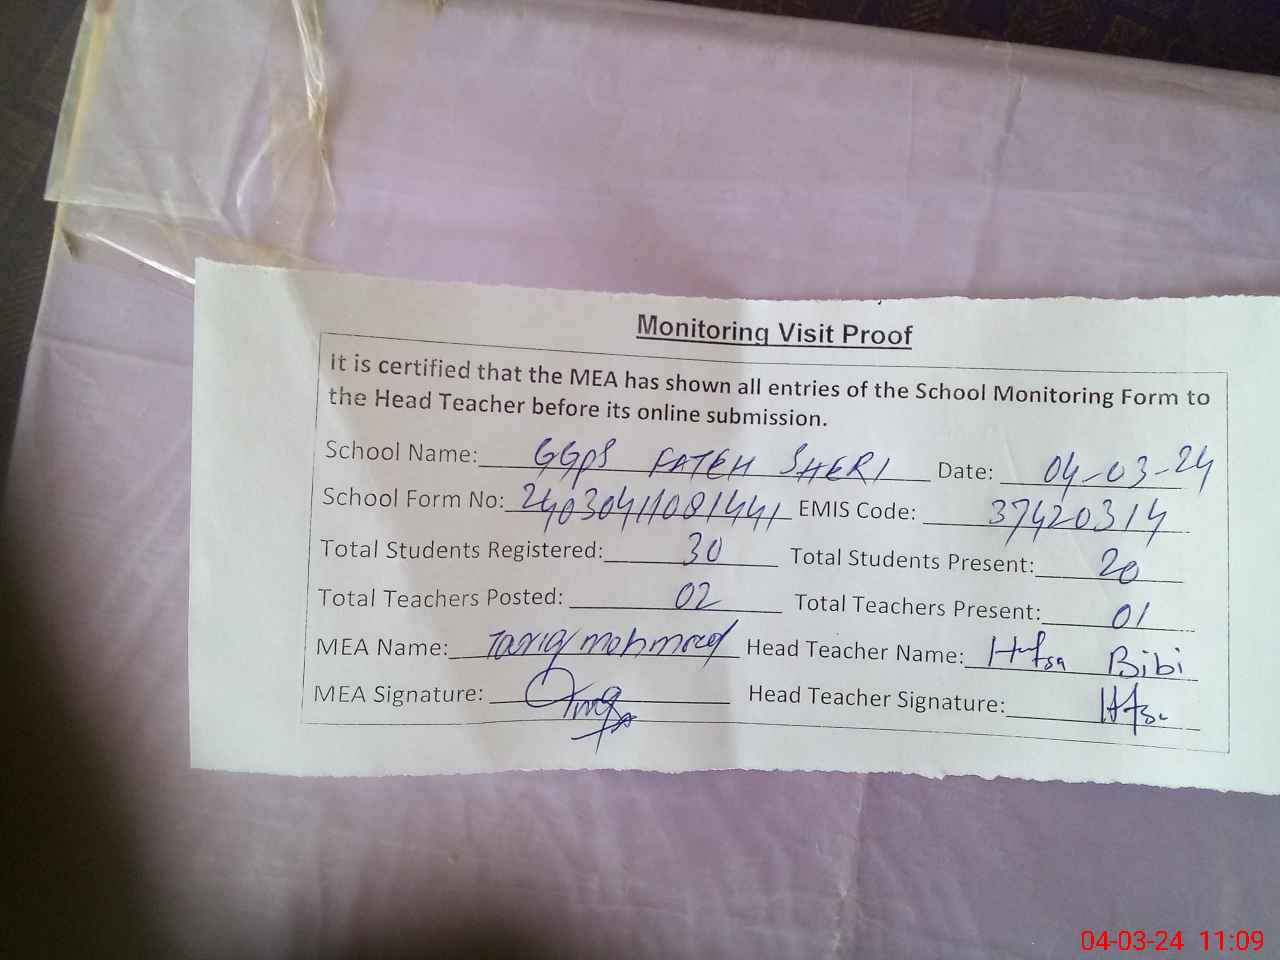 Monitoring Visit Proof
It is certified that the MEA has shown all entries of the School Monitoring Form to
the Head Teacher before its online submission.
School Name: GGPS FATEH SHERI Date: 04-03-24
School Form No: 24030411081441 EMIS Code: 37420314
Total Students Registered: 30 Total Students Present: 20
Total Teachers Posted: 02 Total Teachers Present: 01
MEA Name: Tariq mahmood Head Teacher Name: Hafsa Bibi
MEA Signature: Head Teacher Signature: Hafsa
04-03-24 11:09